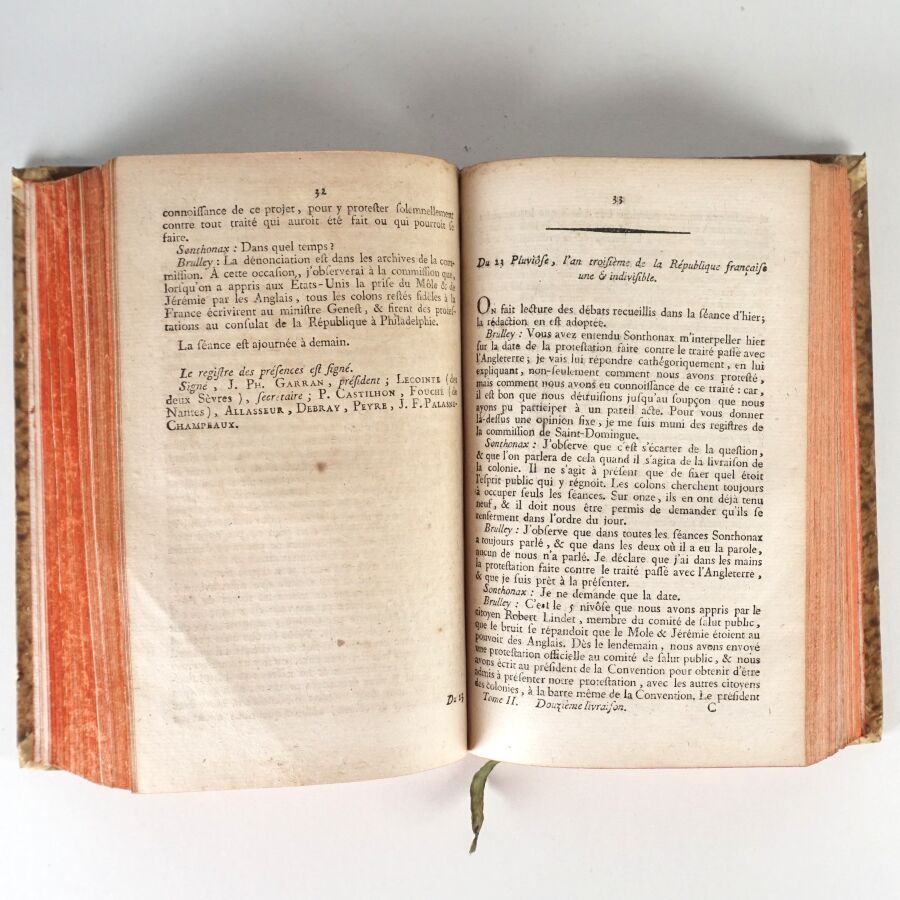 32
connoiſſance de ce projet, pour y proteſter ſolemnellement
contre tout traité qui auroit été fait ou qui pourroit ſe
faire.
Sonthonax : Dans quel temps ?
Brulley : La dénonciation eſt dans les archives de la com-
miſſion. A cette occaſion, j'obſerverai à la commiſſion que,
lorſqu'on a appris aux Etats-Unis la priſe du Môle & de
Jérémie par les Anglais, tous les colons reſtés fidèles à la
France écrivirent au miniſtre Geneſt, & firent des proteſ-
tations au conſulat de la République à Philadelphie.
La ſéance eſt ajournée à demain.
Le regiſtre des préſences eſt ſigné.
Signé, J. PH. GARRAN, préſident ; LECOINTE (des
deux Sèvres), ſecretaire ; P. CASTILHON, FOUCHÉ (de
Nantes), ALLASSEUR, DEBRAY, PEYRE, J. F. PALASNE-
CHAMPEAUX.
Du 23
33
Du 23 Pluviôſe, l'an troiſième de la République françaiſe
une & indiviſible.
ON fait lecture des débats recueillis dans la ſéance d'hier ;
la rédaction en eſt adoptée.
Brulley : Vous avez entendu Sonthonax m'interpeller hier
ſur la date de la proteſtation faite contre le traité paſſé avec
l'Angleterre ; je vais lui répondre cathégoriquement, en lui
expliquant, non-ſeulement comment nous avons proteſté,
mais comment nous avons eu connoiſſance de ce traité : car,
il eſt bon que nous détruiſions juſqu'au ſoupçon que nous
ayons pu participer à un pareil acte. Pour vous donner
là-deſſus une opinion fixe, je me ſuis muni des regiſtres de
la commiſſion de Saint-Domingue.
Sonthonax : J'obſerve que c'eſt s'écarter de la queſtion,
& que l'on parlera de cela quand il s'agira de la livraiſon de
la colonie. Il ne s'agit à préſent que de fixer quel étoit
l'eſprit public qui y régnoit. Les colons cherchent toujours
à occuper ſeuls les ſéances. Sur onze, ils en ont déjà tenu
neuf, & il doit nous être permis de demander qu'ils ſe
renferment dans l'ordre du jour.
Brulley : J'obſerve que dans toutes les ſéances Sonthonax
a toujours parlé, & que dans les deux où il a eu la parole,
aucun de nous n'a parlé. Je déclare que j'ai dans les mains
la proteſtation faite contre le traité paſſé avec l'Angleterre,
& que je ſuis prêt à la préſenter.
Sonthonax : Je ne demande que la date.
Brulley : C'eſt le 5 nivôſe que nous avons appris par le
citoyen Robert Lindet, membre du comité de ſalut public,
que le bruit ſe répandoit que le Mole & Jérémie étoient au
pouvoir des Anglais. Dès le lendemain, nous avons envoyé
une proteſtation officielle au comité de ſalut public, & nous
avons écrit au préſident de la Convention pour obtenir d'être
admis à préſenter notre proteſtation, avec les autres citoyens
des colonies, à la barre même de la Convention. Le préſident
Tome II. Douzième livraiſon. C